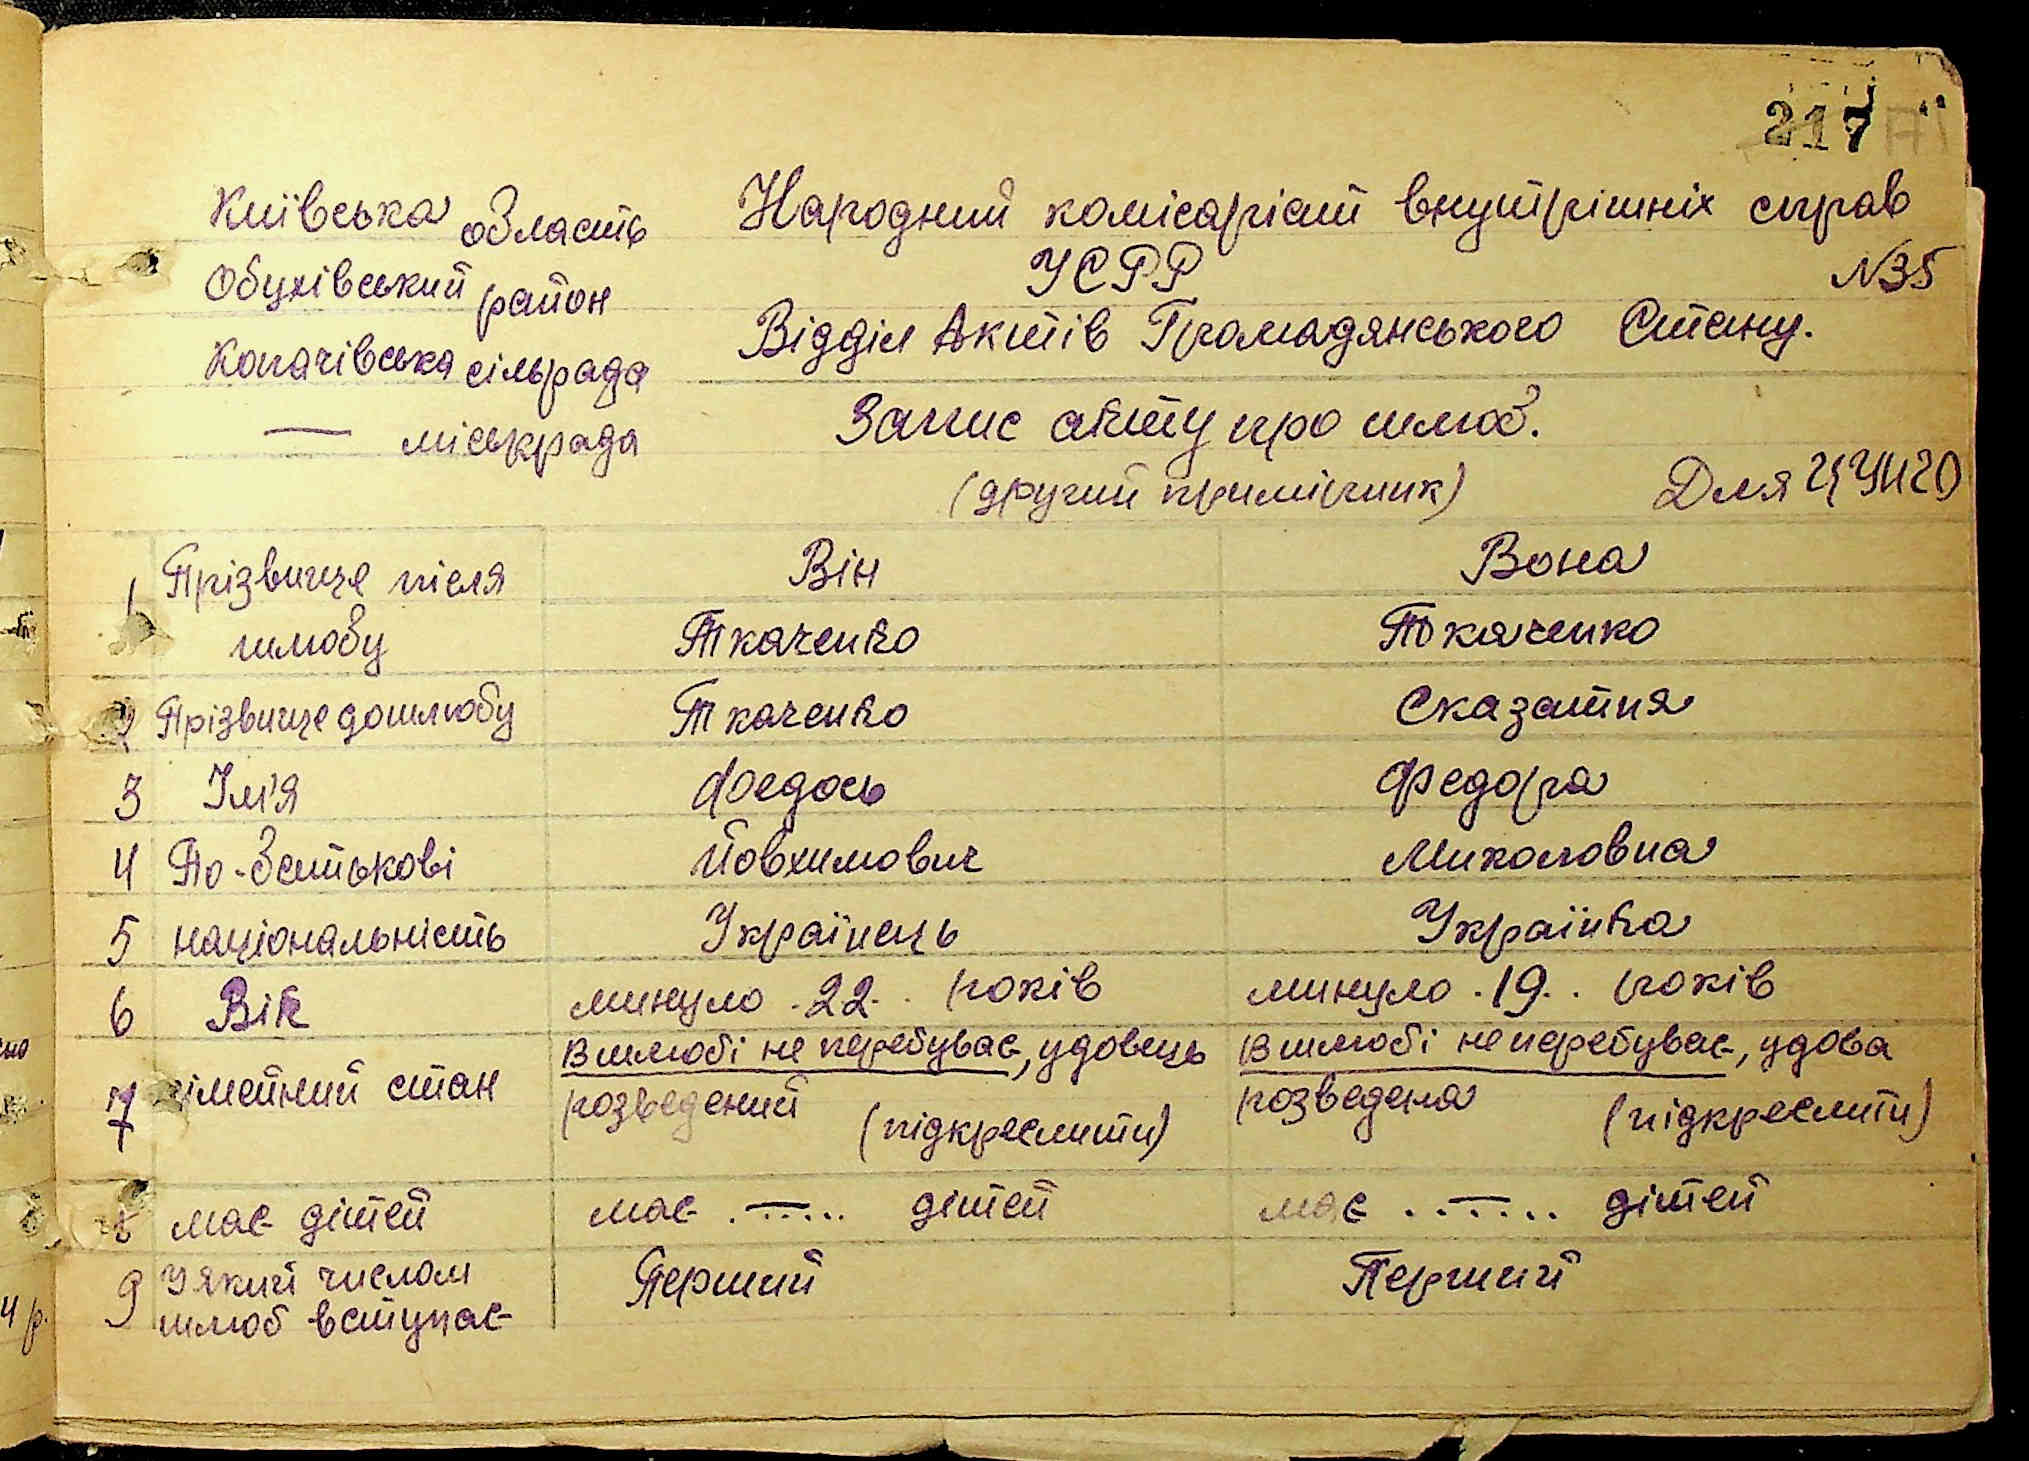 217
Київська область
Народний комісаріат внутрішніх справ
УСРР
№35
Обухівський район
Відділ Актів Громадянського Стану.
Копачівська сільрада
Запис акту про шлюб.
— міськрада
(другий примірник)
Для
Він
Вона
1 Прізвище після шлюбу
Ткаченко
Ткаченко
2 Прізвище до шлюбу
Ткаченко
Сказатня
3 Ім'я
Федось
Федора
4 По-батькові
Йовхимович
Миколовна
5 національність
Українець
Українка
6 Вік
минуло .22. . років
минуло .19. . років
7 сімейний стан
В шлюбі не перебуває, удовець
розведений (підкреслити)
В шлюбі не перебуває, удова
розведена (підкреслити)
8 має дітей
має . — . . . . дітей
має . . — . . . . дітей
9 У який числом
шлюб вступає
Перший
Перший